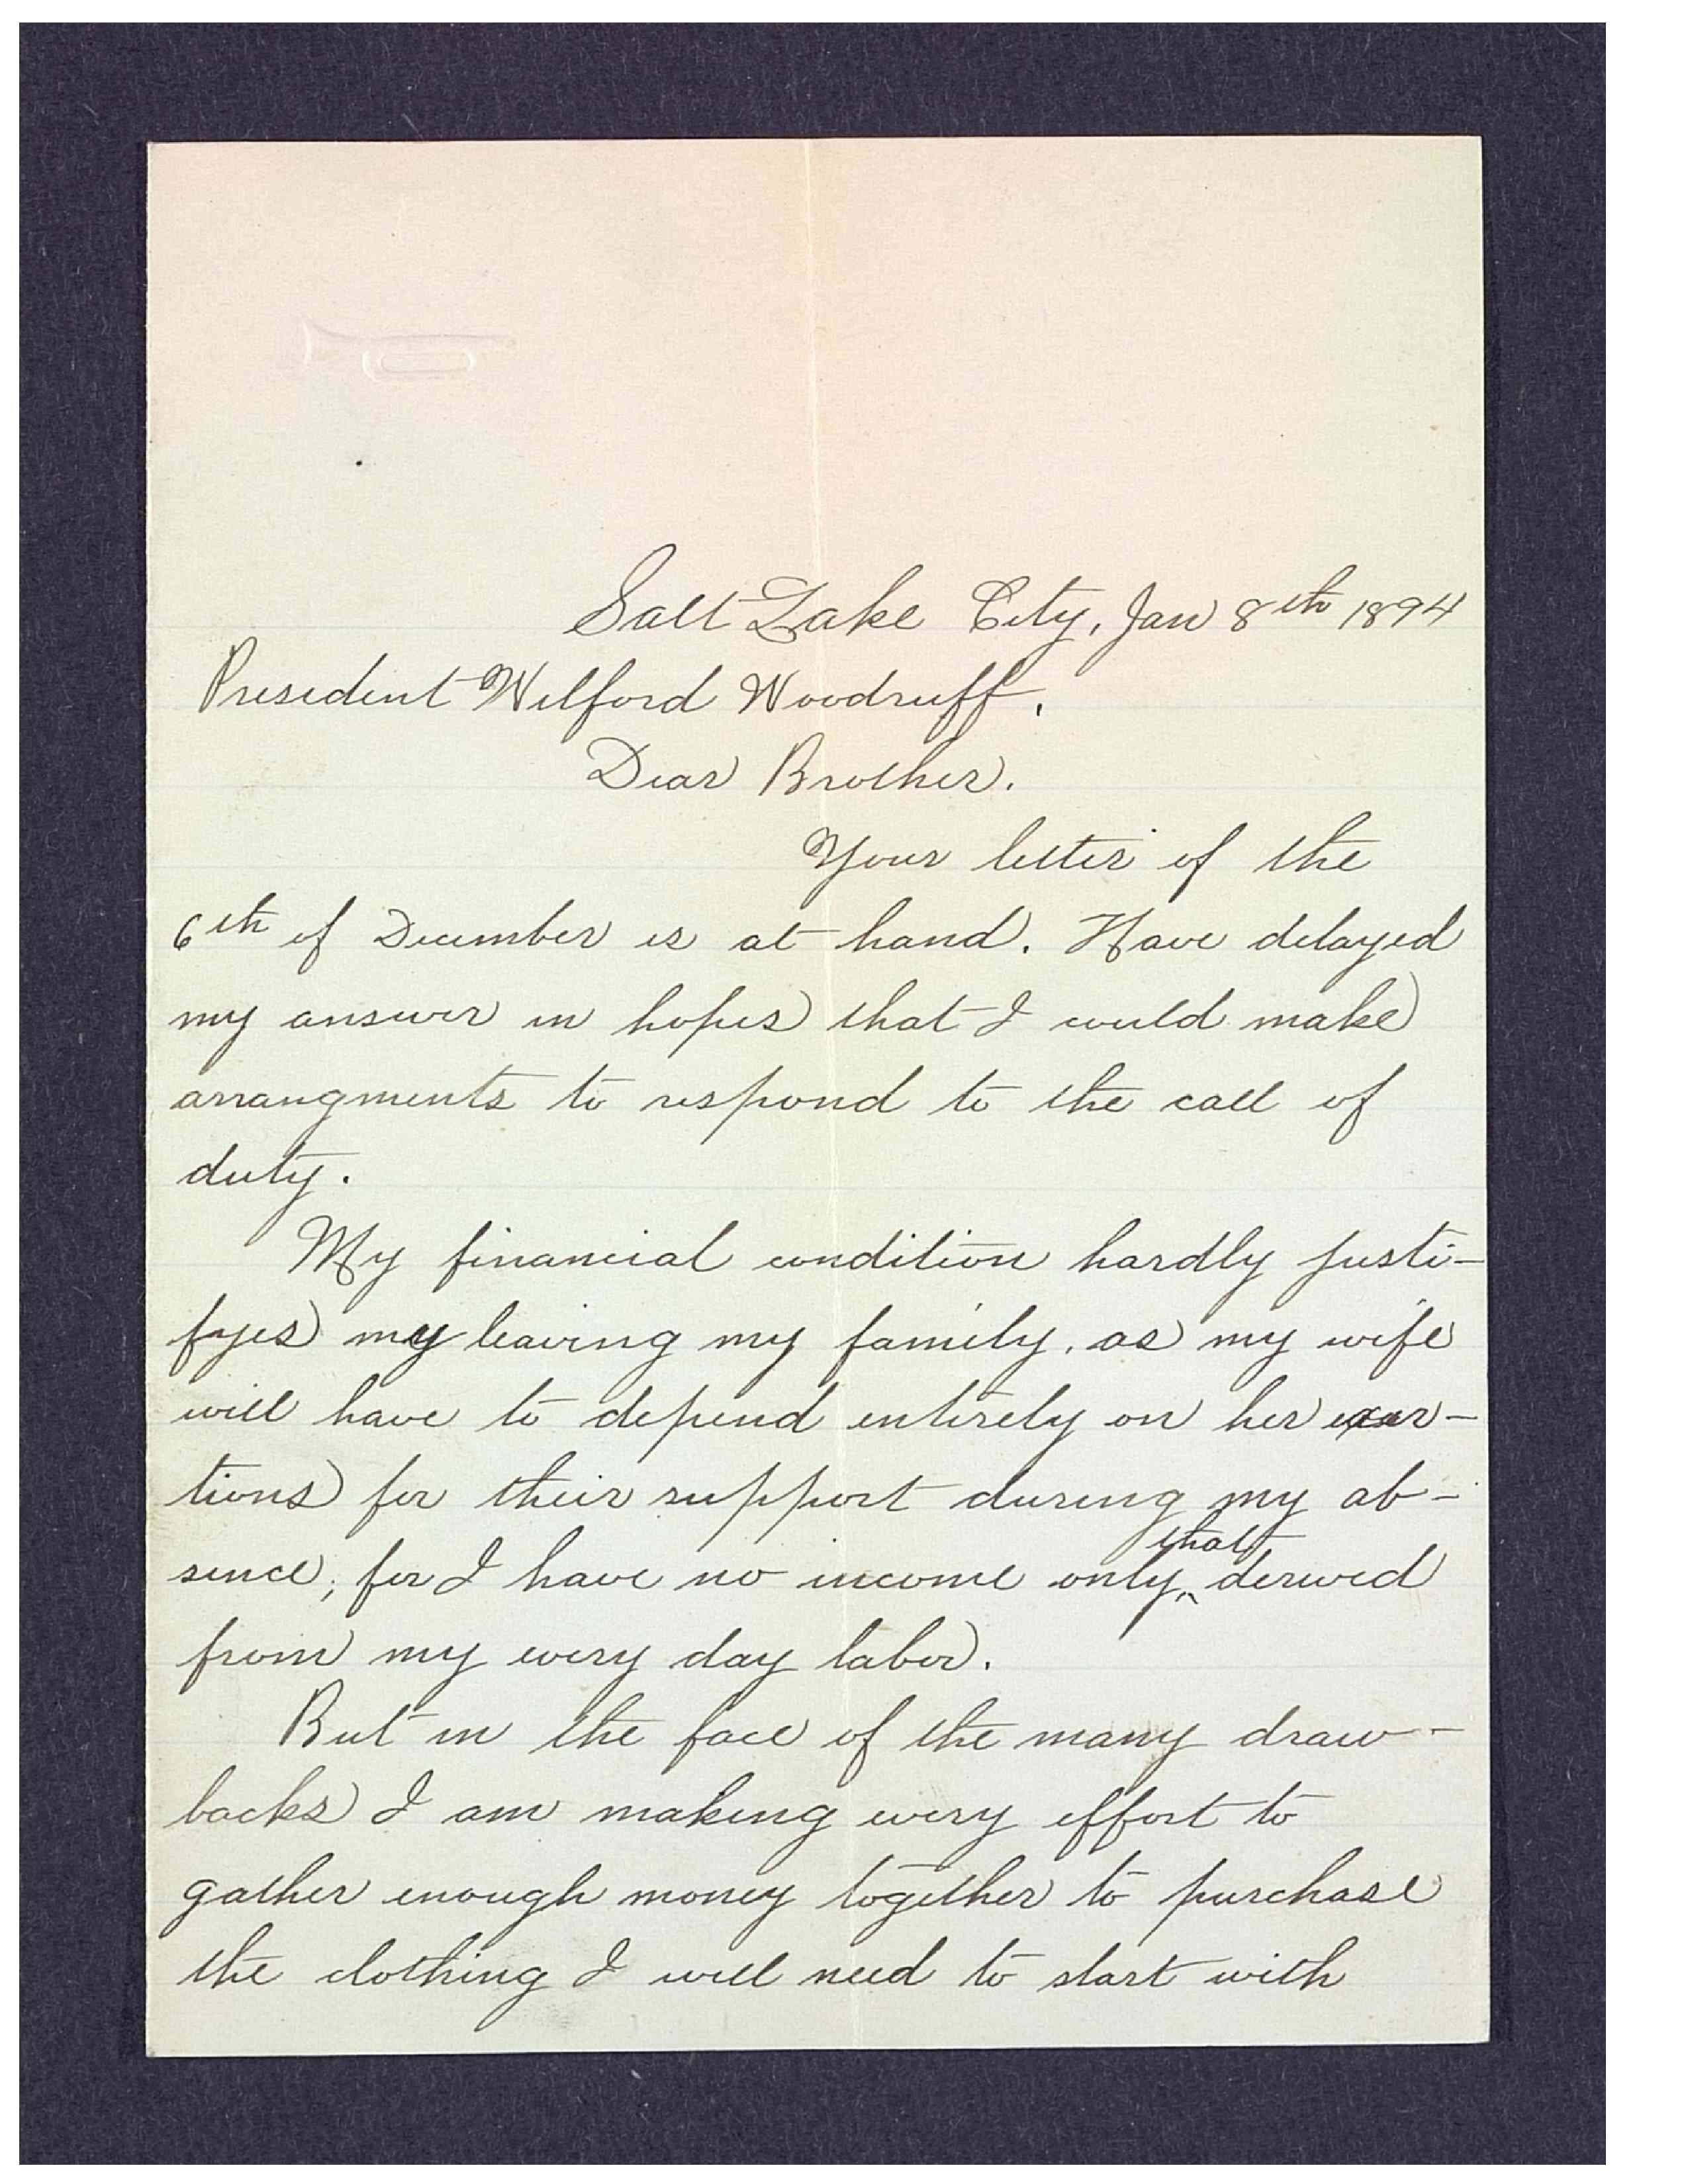 Salt Lake City, Jan 8th 1894
President Wilford Woodruff,
Dear Brother.
Your letter of the
6th of December is at hand. Have delayed
my answer in hopes that I could make
arrangments to respond to the call of
duty.
My financial condition hardly justi-
fyes my leaving my family, as my wife
will have to depend entirely on her exer-
tions for their support during my ab-
sence; for I have no income only that derived
from my every day labor.
But in the face of the many draw-
backs I am making every effort to
gather enough money together to purchase
the clothing I will need to start with